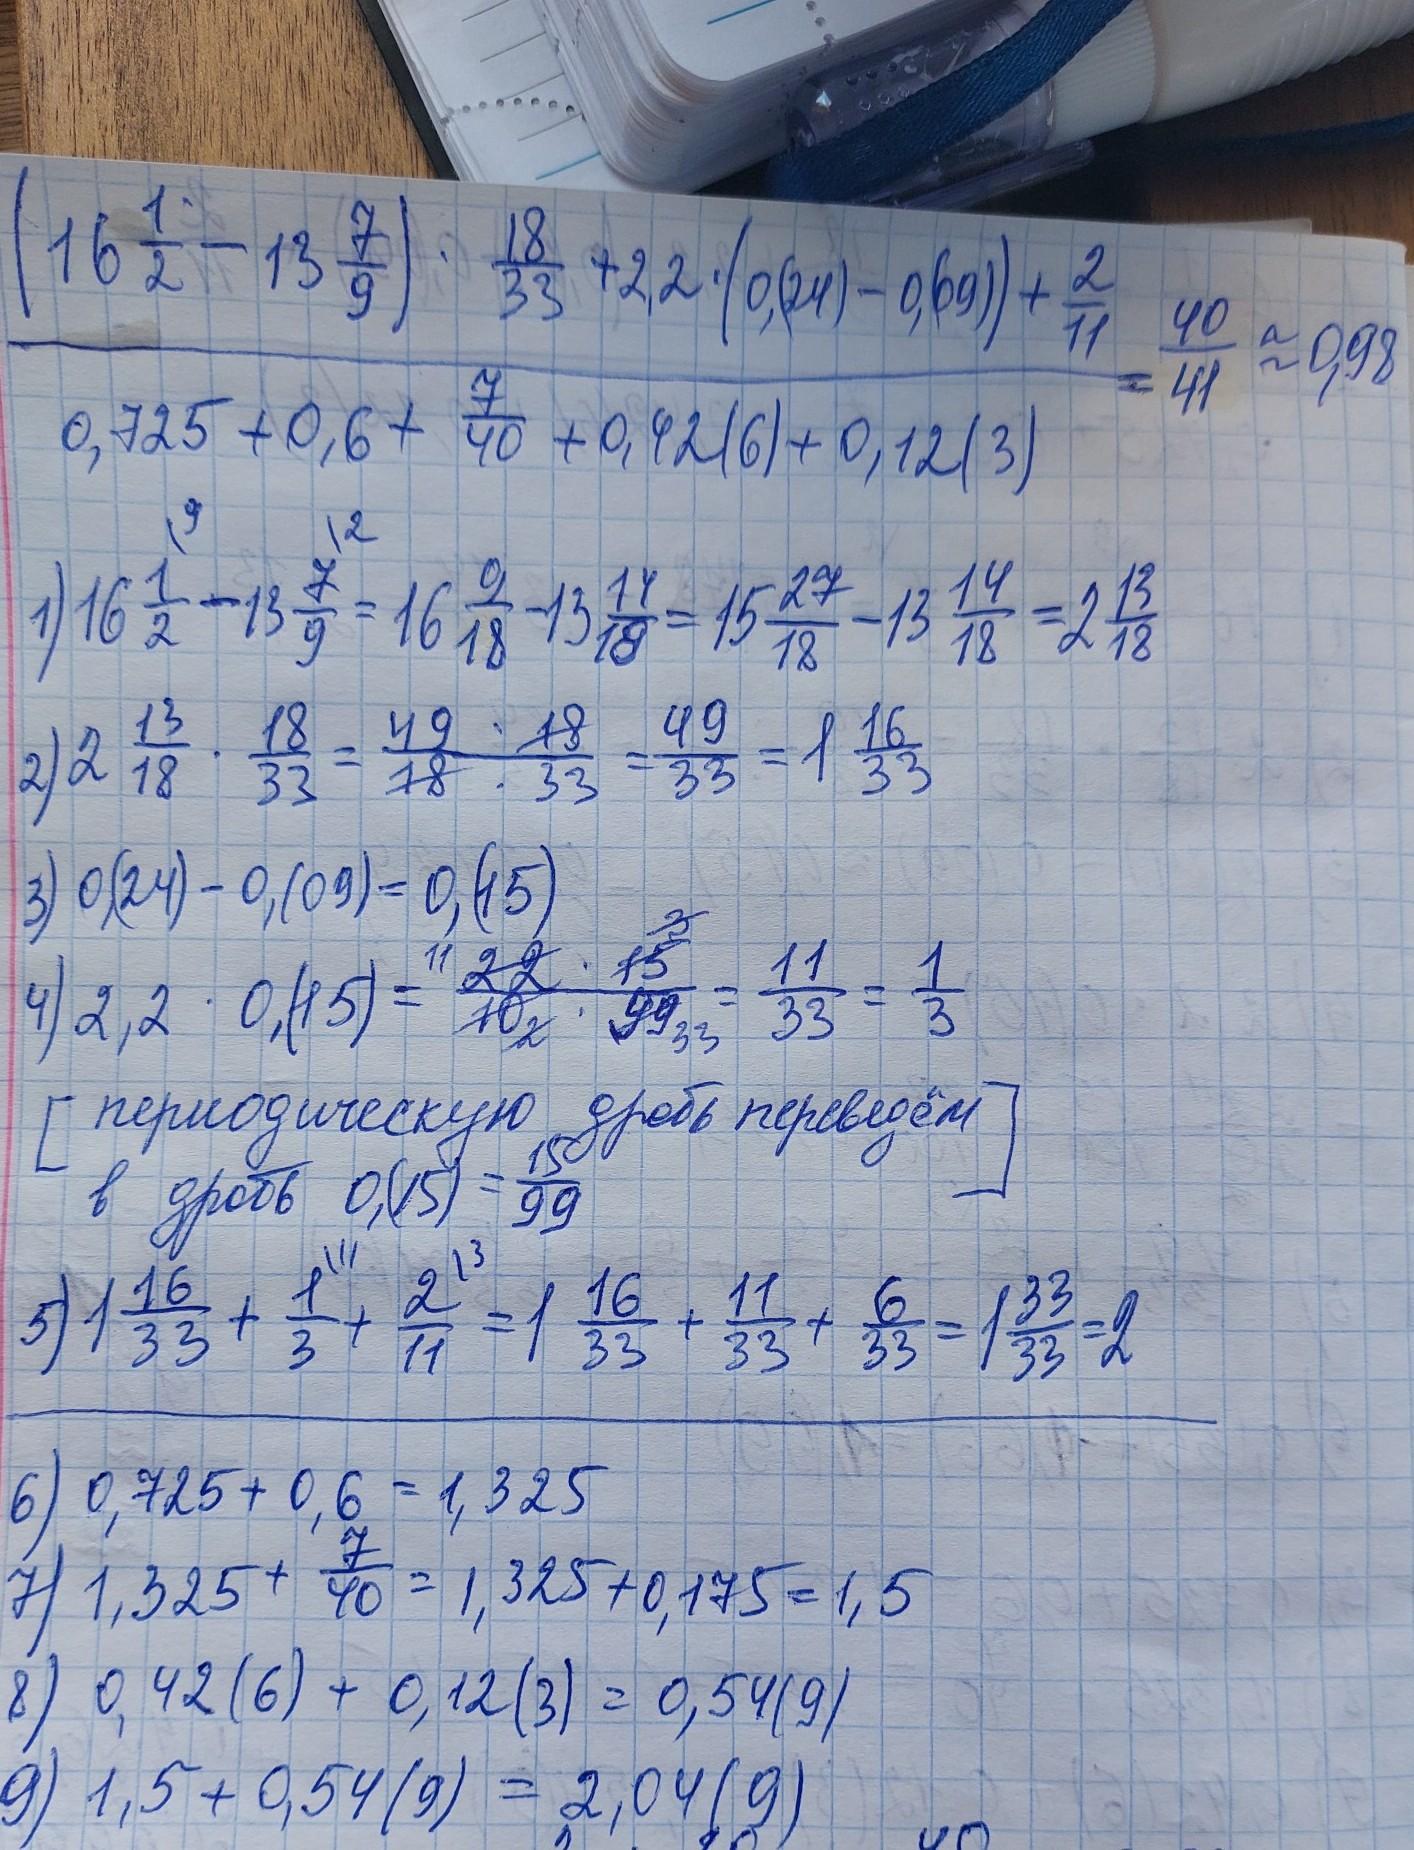 (16 1/2 − 13 7/9) · 18/33 + 2,2 · (0,(24) − 0,(09)) + 2/11
0,725 + 0,6 + 7/40 + 0,42(6) + 0,12(3)
= 40/41 ≈ 0,98
1) 16 1/2 \9 − 13 7/9 \2 = 16 9/18 − 13 14/18 = 15 27/18 − 13 14/18 = 2 13/18
2) 2 13/18 · 18/33 = 49 · 18 / 18 · 33 = 49/33 = 1 16/33
3) 0,(24) − 0,(09) = 0,(15)
4) 2,2 · 0,(15) = 11 22 · 15 3 / 10 2 · 99 33 = 11/33 = 1/3
[ периодическую дробь переведём
в дробь 0,(15) = 15/99 ]
5) 1 16/33 + 1/3 \11 + 2/11 \3 = 1 16/33 + 11/33 + 6/33 = 1 33/33 = 2
6) 0,725 + 0,6 = 1,325
7) 1,325 + 7/40 = 1,325 + 0,175 = 1,5
8) 0,42(6) + 0,12(3) = 0,54(9)
9) 1,5 + 0,54(9) = 2,04(9)